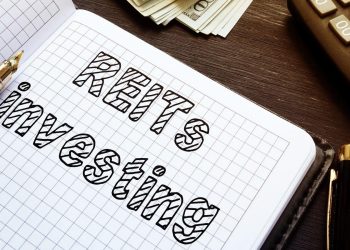 REITs
investing